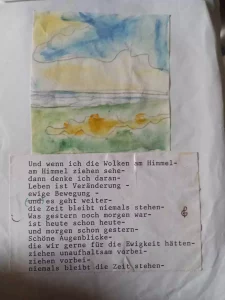 Und wenn ich die Wolken am Himmel-
am Himmel ziehen sehe-
dann denke ich daran-
Leben ist Veränderung -
ewige Bewegung -
und es geht weiter-
die Zeit bleibt niemals stehen-
Was gestern noch morgen war-
ist heute schon heute-
und morgen schon gestern-
Schöne Augenblicke-
die wir gerne für die Ewigkeit hätten-
ziehen unaufhaltsam vorbei-
ziehen vorbei-
niemals bleibt die Zeit stehen-